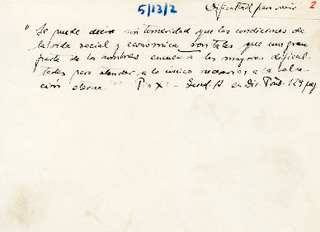 5/13/2
Dificultad para vivir
2
"Se puede decir sin temeridad que las condiciones de
la vida social y económica son tales que una gran
parte de los hombres encuentra las mayores dificul-
tades para atender a lo único necesario, a la salva-
ción eterna" P. XI - Quad. A en Dir. Pont. 129 pag